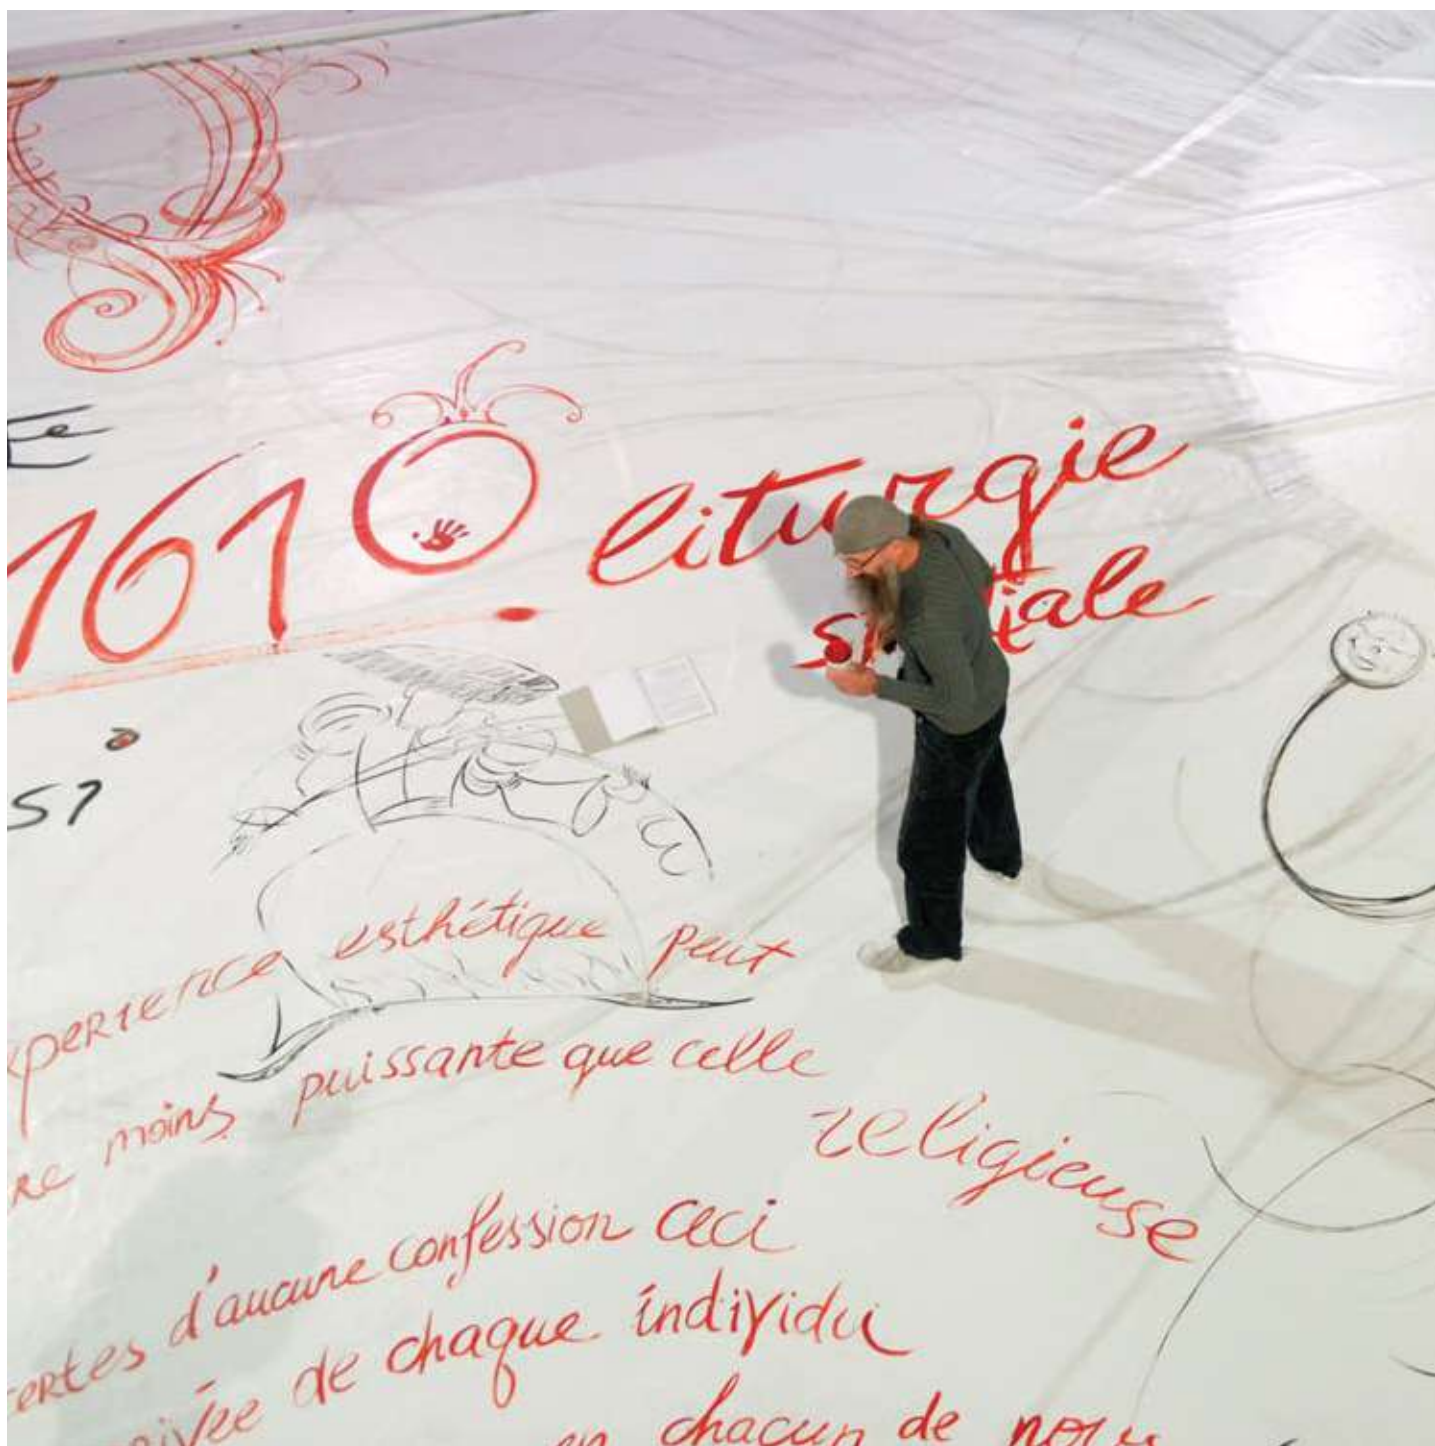 te
1610 liturgie
spatiale
51
xperience esthétique peut
re moins puissante que celle
religieuse
ertes d'aucune confession ceci
rivée de chaque individu
en chacun de nous